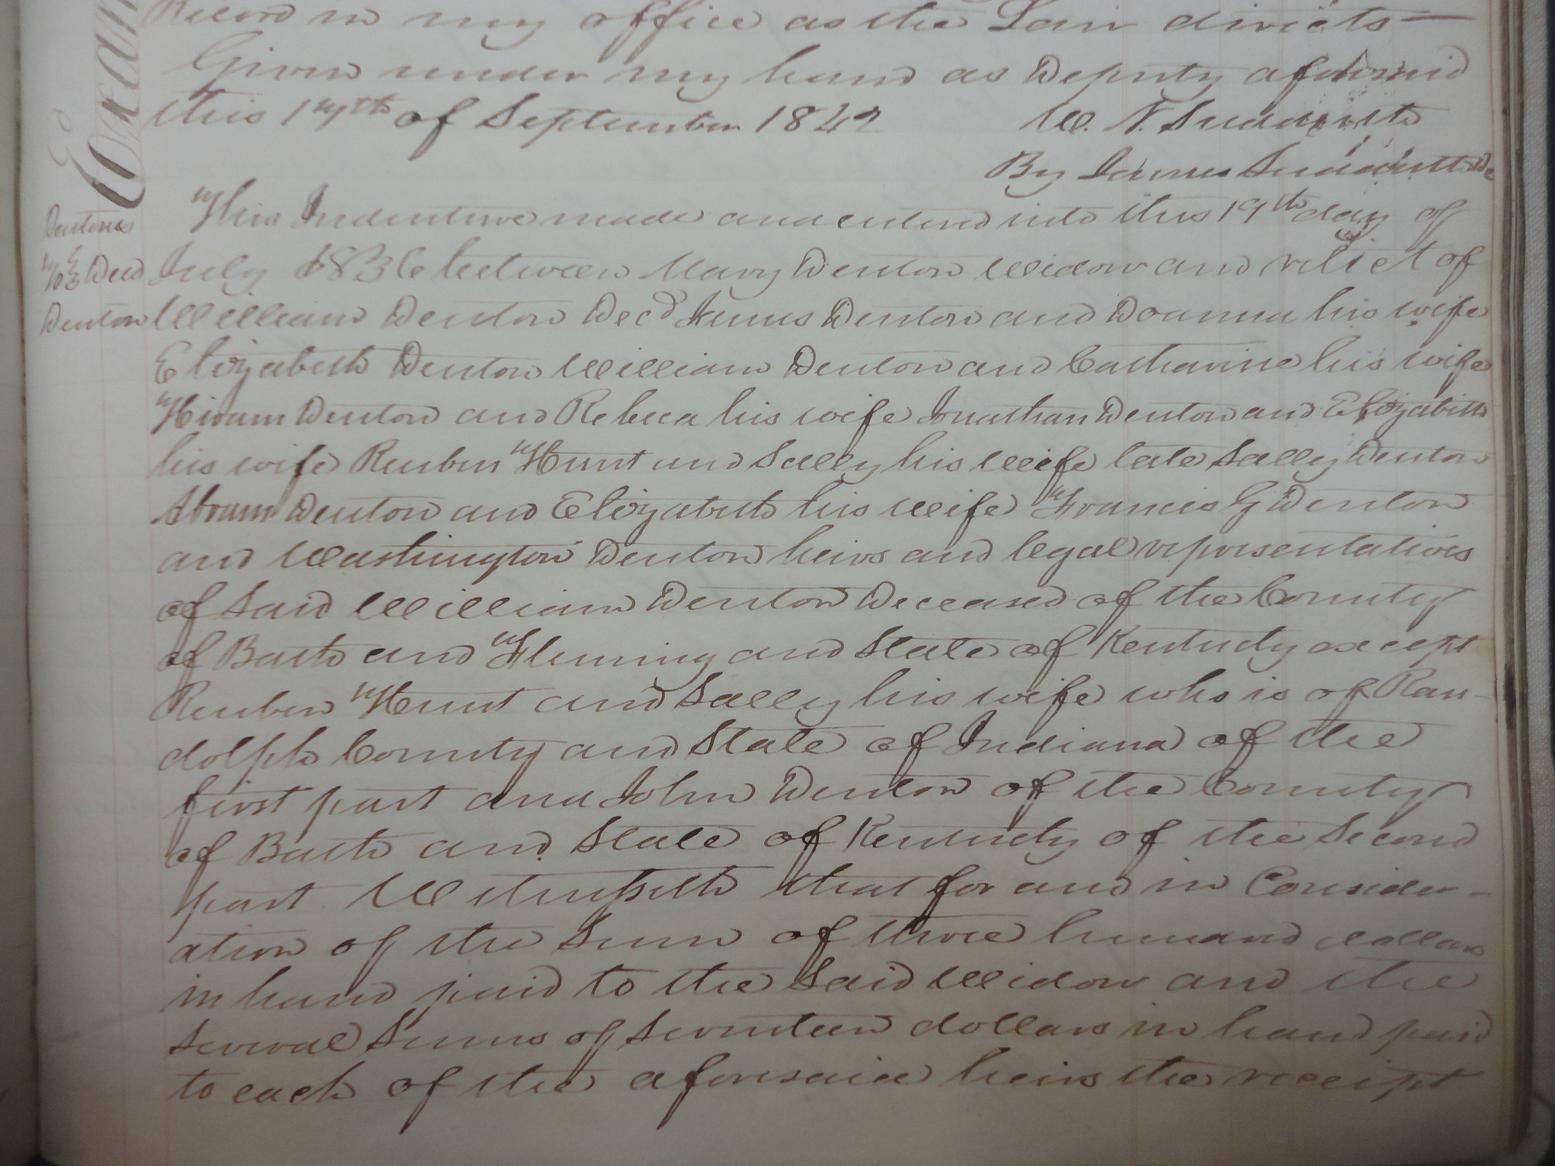 Record in my office as the Law directs
Given under my hand as Deputy aforesaid
this 19th of September 1842 W. N. Sudduth
By James Sudduth Dc
Exam
Dentons
To Deed
Denton
This Indenture made and entered into this 19th day of
July 1836 between Mary Denton Widow and relict of
William Denton Decd James Denton and Doanna his wife
Elizabeth Denton William Denton and Catharine his wife
Hiram Denton and Rebeca his wife Jonathan Denton and Elizabeth
his wife Reuben Hunt and Sally his wife late Sally Denton
Abram Denton and Elizabeth his wife Francis G Denton
and Washington Denton heirs and legal representatives
of Said William Denton Deceased of the County
of Bath and Fleming and State of Kentucky except
Reuben Hunt and Sally his wife who is of Ran-
dolph County and State of Indiana of the
first part and John Denton of the County
of Bath and State of Kentucky of the Second
part Witnesseth that for and in Consider-
ation of the Sum of three hundred dollars
in hand paid to the Said Widow and the
Several Sums of Seventeen dollars in hand paid
to each of the aforesaid heirs the receipt